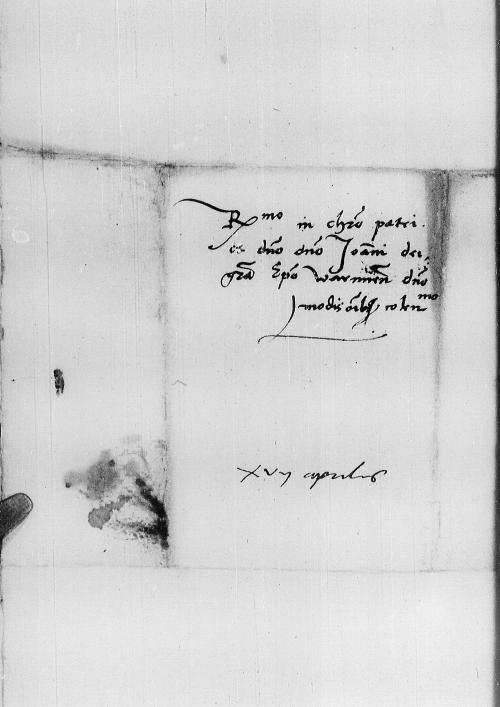 R^mo in chro patri
et dno dno Joanni dei
gra Epo warmien dno
modis oibq colen^mo
xvij aprilis